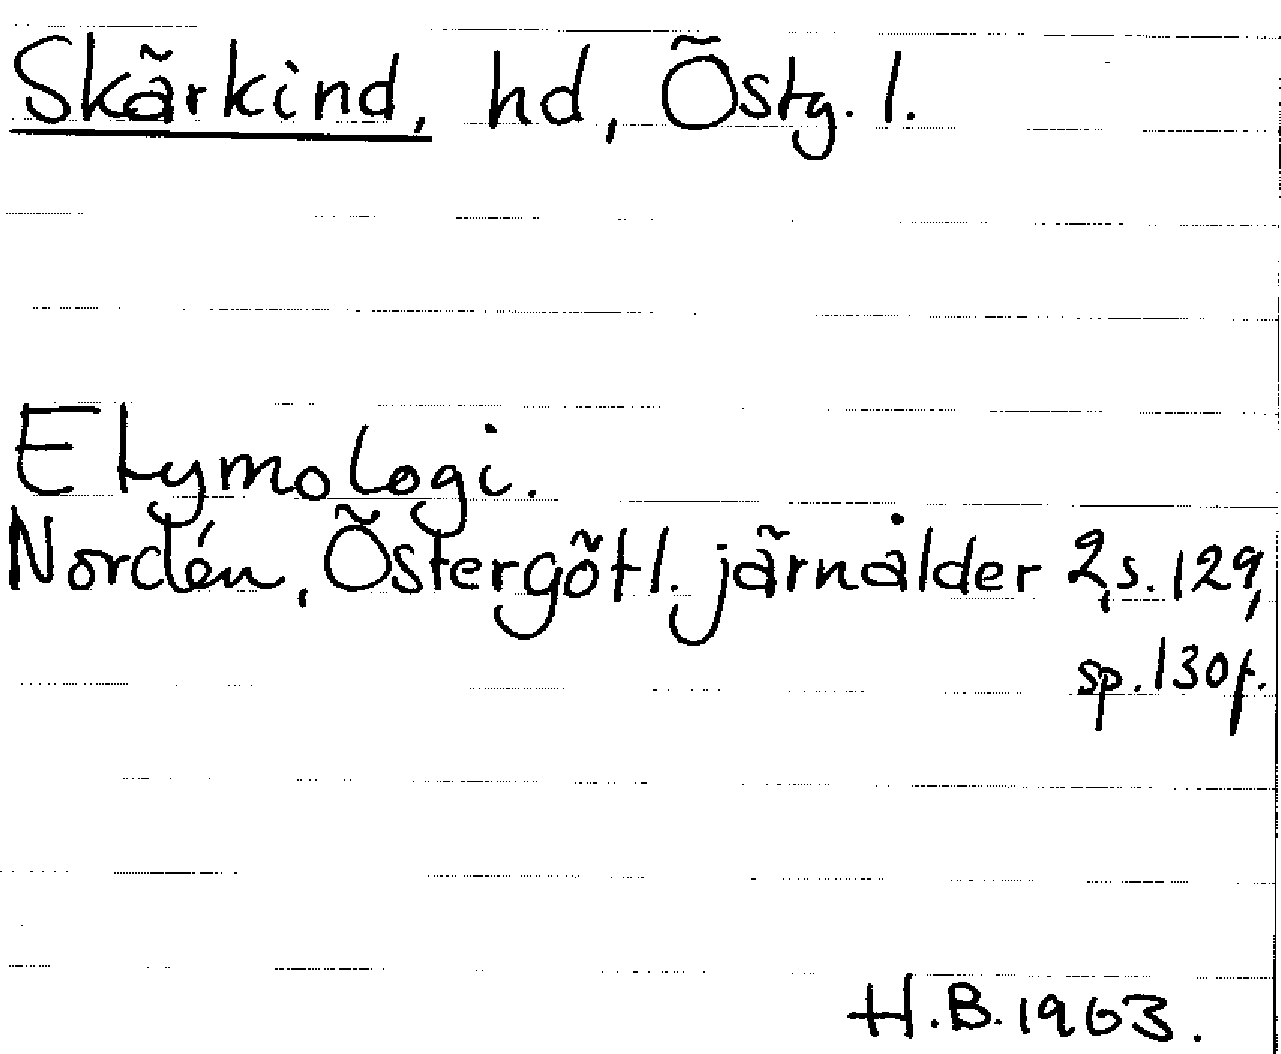 Skärkind, hd, Östg. l.
Etymologi.
Nordén, Östergötl. järnålder 2, s. 129,
sp. 130 f.
H.B. 1963.